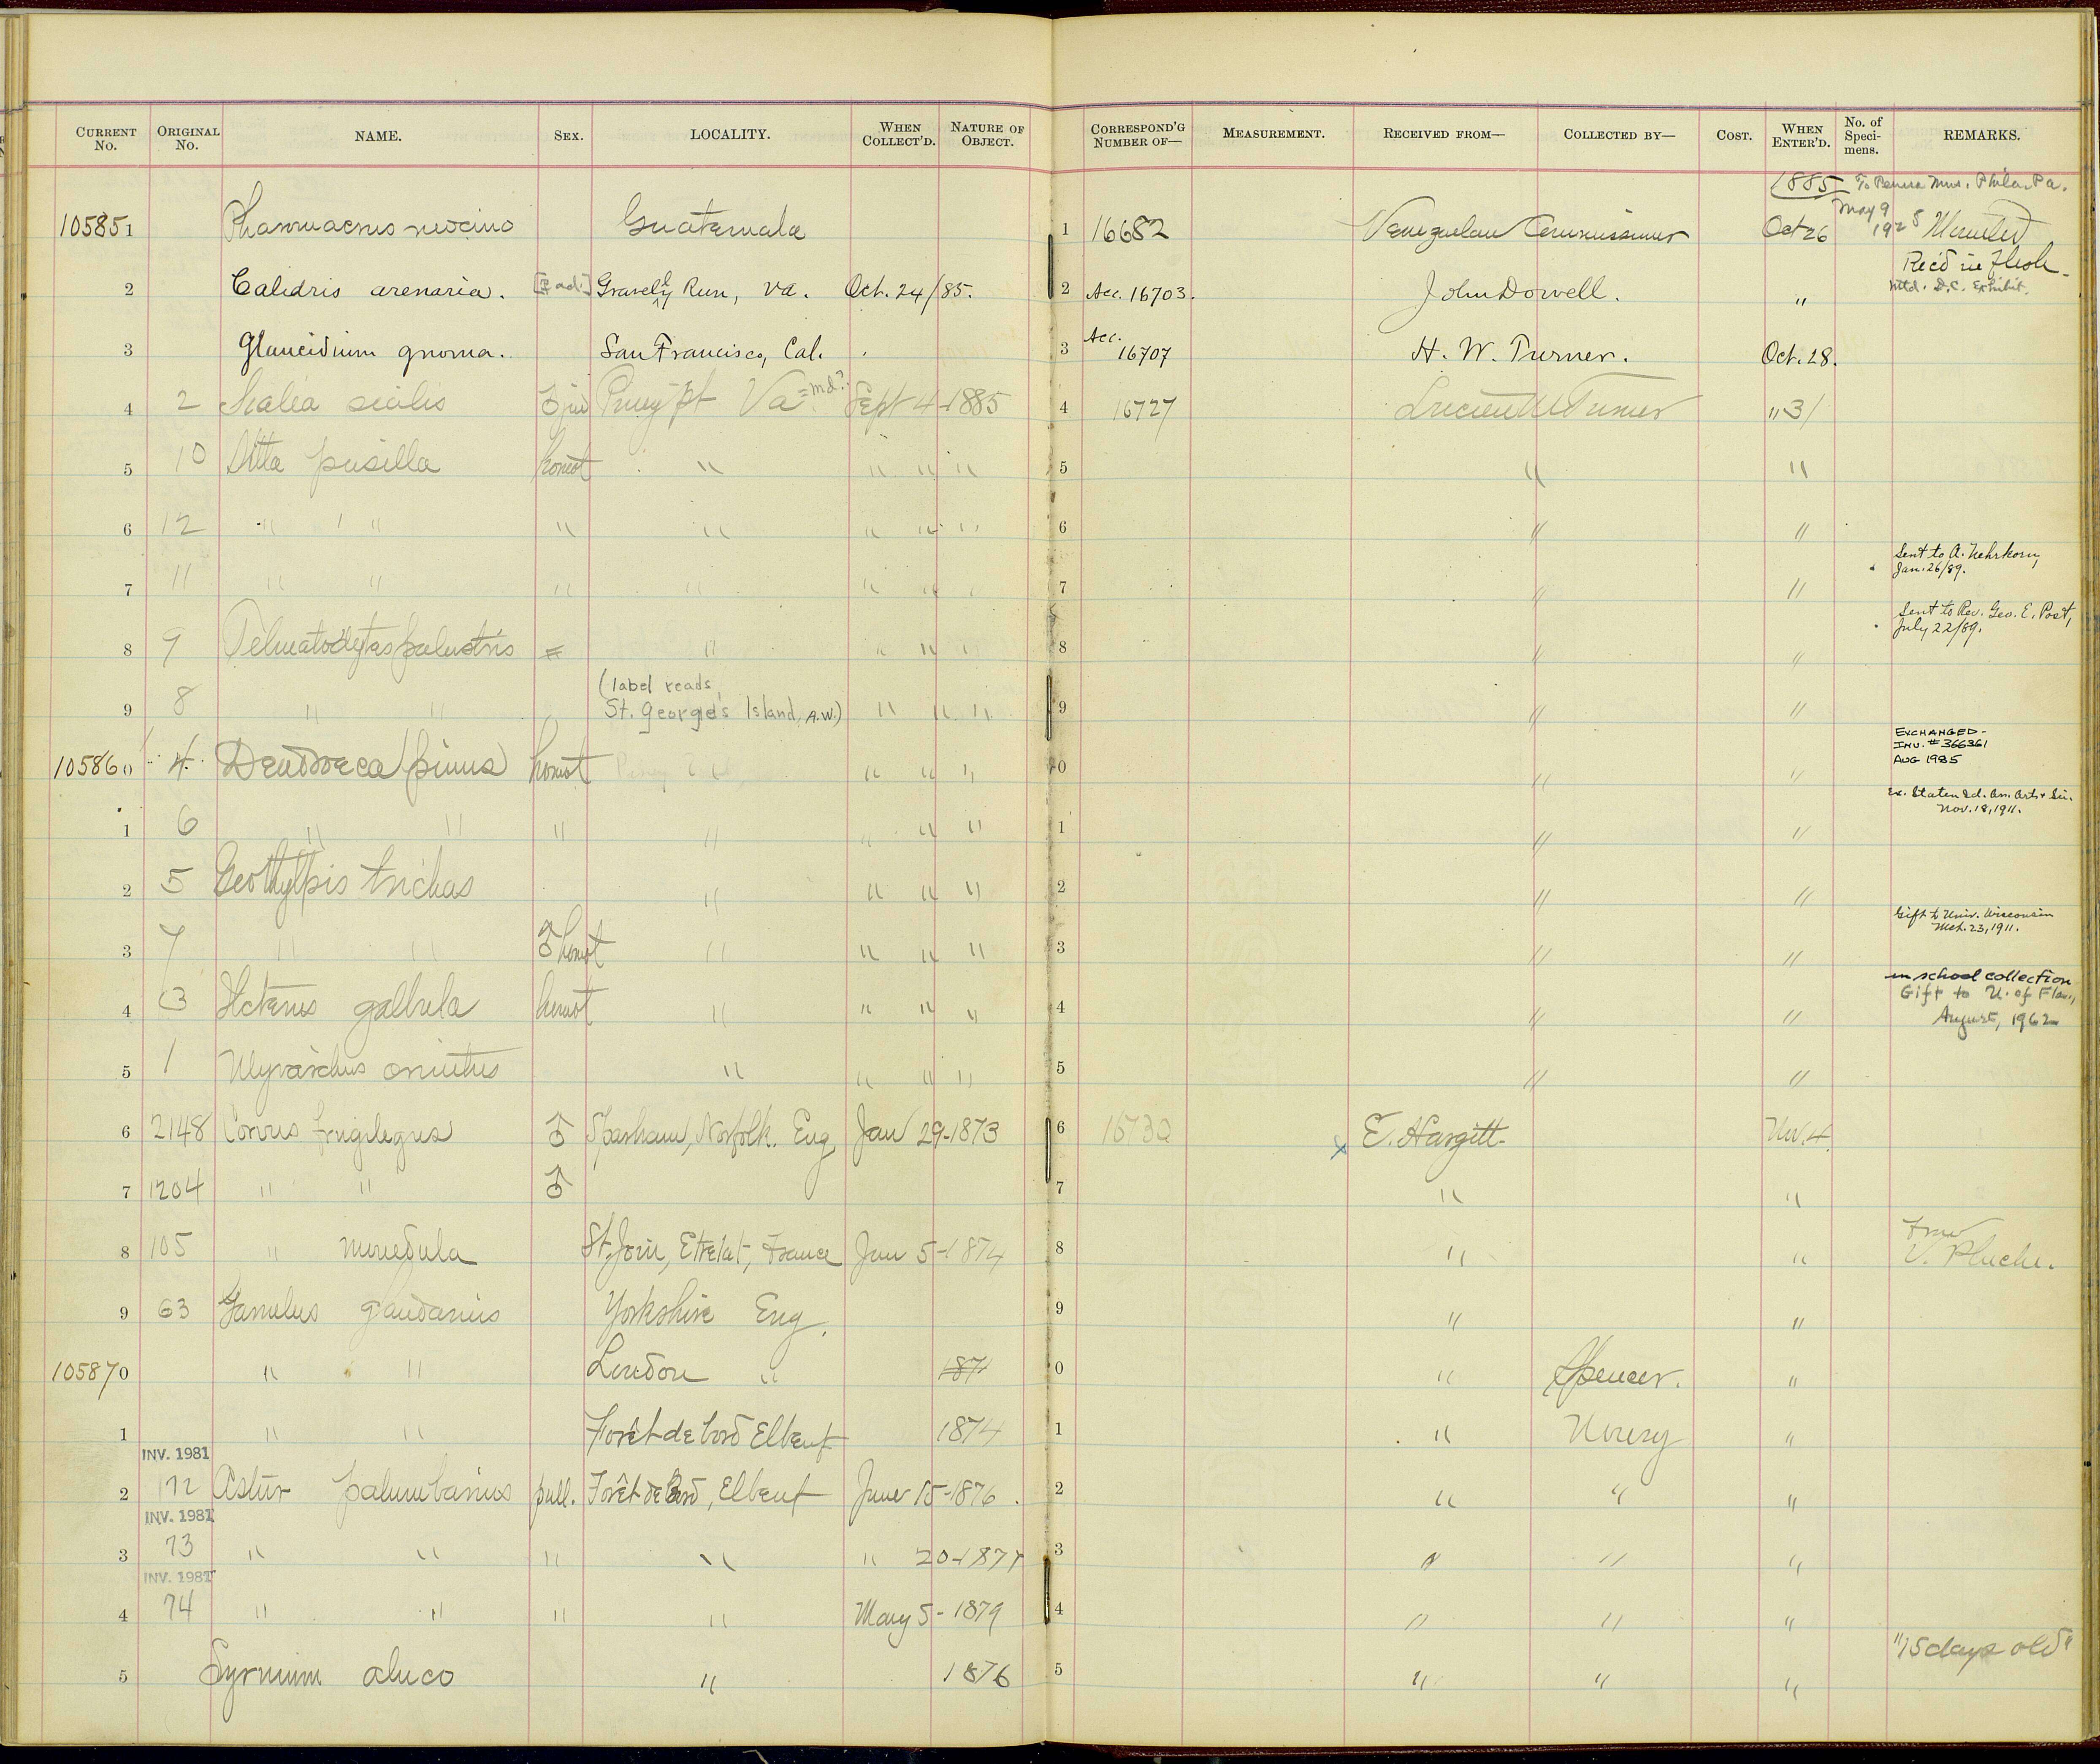 CURRENT No. ORIGINAL No. NAME. SEX. LOCALITY. WHEN COLLECT'D. NATURE OF OBJECT. CORRESPOND'G NUMBER OF— MEASUREMENT. RECEIVED FROM— COLLECTED BY— COST. WHEN ENTER'D. No. of Speci- mens. REMARKS.
1885 To Penna Mus. Phila. Pa.
May 9
105851 Guatemala 1 16682 Venezuelan Commissioner Oct 26 1928 Mounted
Rec'd in flesh
2 Calidris arenaria. [♀ ad.] Gravelly Run, Va. Oct. 24/85. 2 Acc. 16703. John Dowell. " Mtd. D.C. Exhibit.
3 Glaucidium gnoma. San Francisco, Cal. 3 Acc. 16707 H. W. Turner. Oct. 28.
4 2 Sialia sialis ♂ juv Piney Pt Va = Md? Sept 4-1885 4 16727 Lucien M Turner " 31
5 10 Sitta pusilla " " " " 5 " "
6 12 " " " " " " " 6 " "
Sent to A. Nehrkorn,
Jan. 26/89.
7 11 " " " " " " " 7 " "
Sent to Rev. Geo. E. Post,
July 22/89.
8 9 Telmatodytes palustris " " " " 8 " "
(label reads
9 8 " " St. George's Island, A.W.) " " " 9 " "
EXCHANGED-
INV. # 366361
AUG 1985
105860 4 Dendroeca pinus Piney " " " 0 " "
Ex. Staten Id. An. Arts & Sci.
Nov. 18, 1911.
1 6 " " " " " " " 1 " "
2 5 Geothlypis trichas " " " " 2 " "
Gift to Univ. Wisconsin
Mch. 23, 1911.
3 7 " " ♂ " " " " 3 " "
in school collection
Gift to U. of Fla.,
August, 1962
4 3 Icterus galbula " " " " 4 " "
5 1 Myiarchus crinitus " " " " 5 " "
6 2148 Corvus frugilegus ♂ Sparham, Norfolk. Eng Jan 29-1873 6 16730 x E. Hargitt Nov. 4.
7 1204 " " ♂ 7 " "
8 105 " monedula St. Jouin, Etretat, France Jan 5-1874 8 " " From
V. Pluche.
9 63 Garrulus glandarius Yorkshire Eng. 9 " "
105870 " " London " 1871 0 " Spencer. "
1 " " Forêt de bord Elbeuf 1874 1 " Noury "
INV. 1981
2 172 Astur palumbarius pull. Forêt de Bord, Elbeuf June 15-1876. 2 " " "
INV. 1981
3 73 " " " " " 20-1877 3 " " "
INV. 1981
4 74 " " " " May 5-1879 4 " " "
"15 days old"
5 Syrnium aluco " 1876 5 " " "